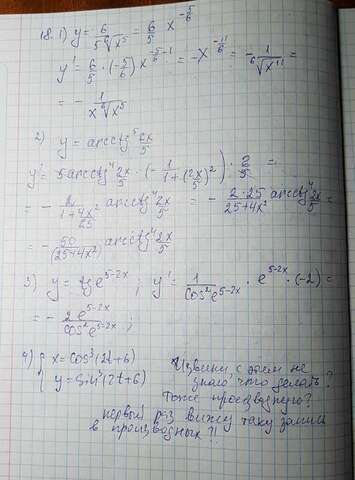 18. 1) y = 6/(5 ⁶√x⁵) = 6/5 x^(-5/6)
y' = 6/5 · (-5/6) x^(-5/6 - 1) = -x^(-11/6) = -1/(⁶√x¹¹) =
= - 1/(x ⁶√x⁵)
2) y = arcctg⁵ 2x/5
y' = 5arcctg⁴ 2x/5 · (-1/(1+(2x/5)²)) · 2/5 =
= - 2/(1+4x²/25) arcctg⁴ 2x/5 = - 2·25/(25+4x²) arcctg⁴ 2x/5 =
= - 50/(25+4x²) arcctg⁴ 2x/5
3) y = tg e^(5-2x) ; y' = 1/(cos² e^(5-2x)) · e^(5-2x) · (-2) =
= - 2e^(5-2x)/(cos² e^(5-2x)) ;
4) { x = cos³(2t+6)
{ y = sin³(2t+6)
Извини, с этим не
знаю что делать?
Тоже производную?
первый раз вижу таку запись
в производных?!